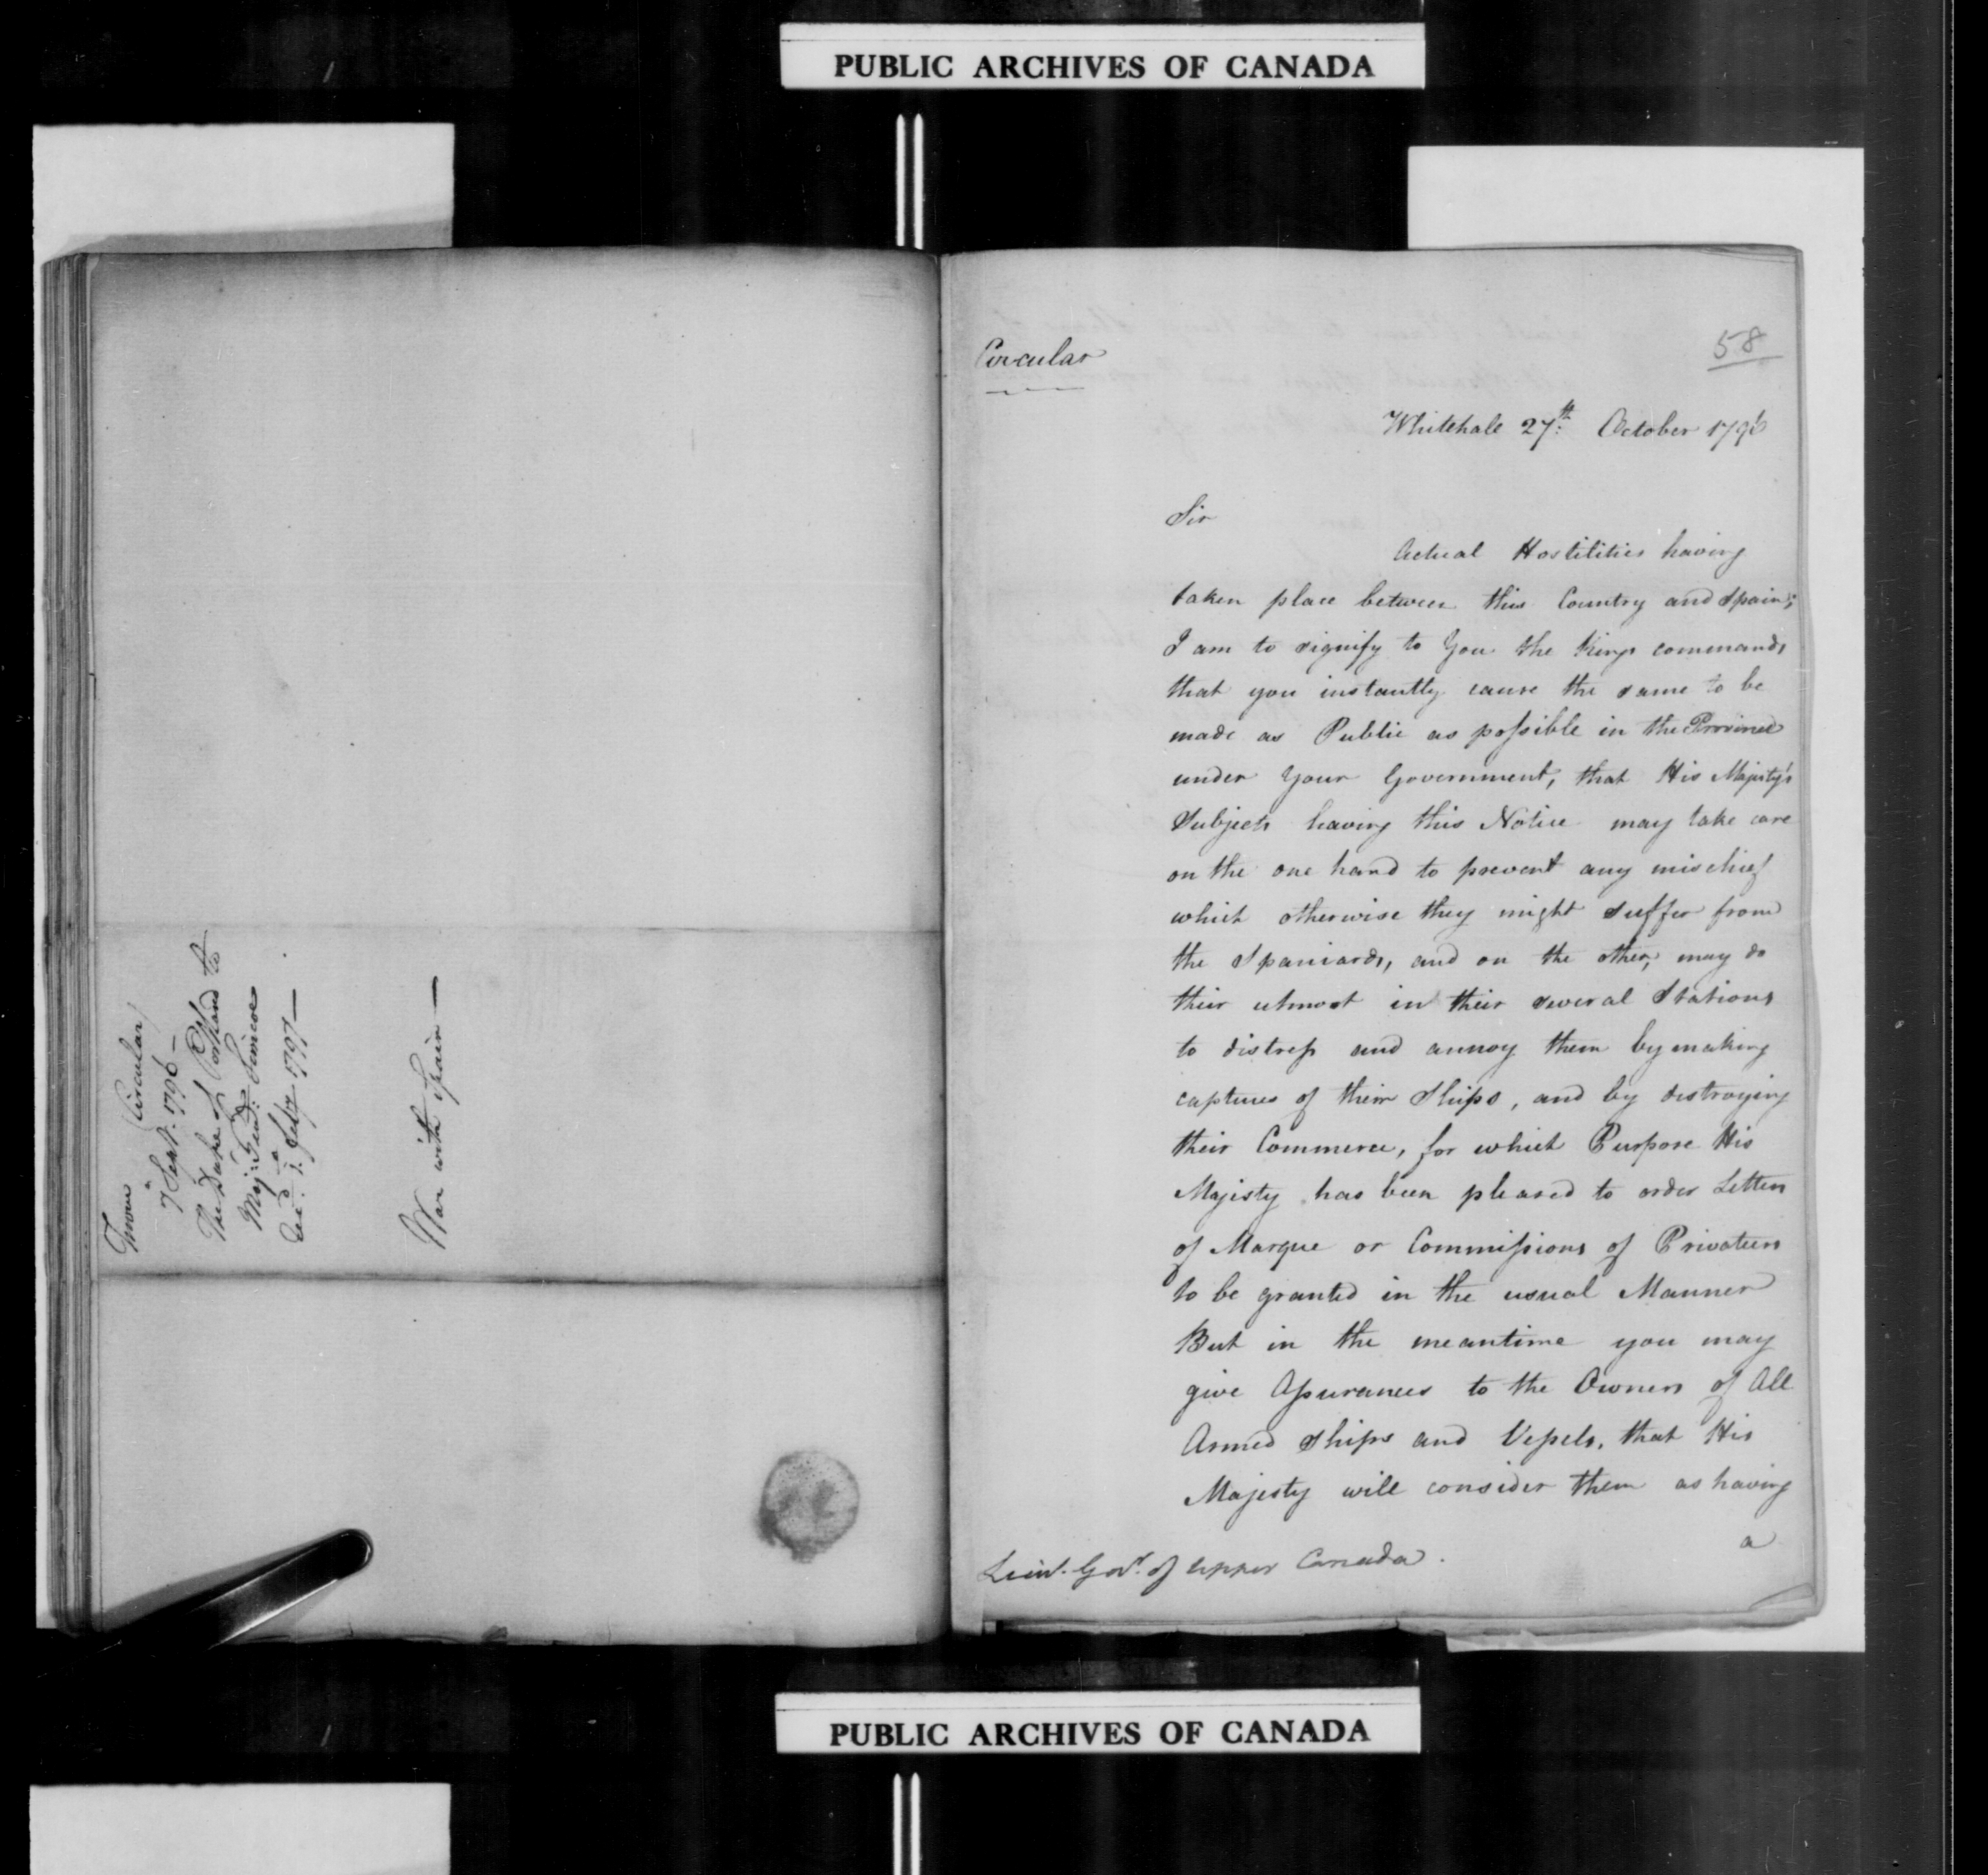 PUBLIC ARCHIVES OF CANADA
(Circular)
7 Sept. 1796 —
The Duke of Portland to
Maj: Genl: Simcoe
Recd. 1. July 1797 —
War with Spain —
58
Circular
Whitehall 27th: October 1796
Sir
Actual Hostilities having
taken place between this Country and Spain;
I am to signify to You the Kings commands
that you instantly cause the same to be
made as Public as possible in the Province
under Your Government, that His Majesty's
Subjects having this Notice may take care
on the one hand to prevent any mischief
which otherwise they might suffer from
the Spaniards, and on the other, may do
their utmost in their several Stations
to distress and annoy them by making
captures of their Ships, and by destroying
their Commerce, for which Purpose His
Majesty has been pleased to order Letters
of Marque or Commissions of Privateers
to be granted in the usual Manner
But in the meantime you may
give Assurances to the Owners of All
Armed Ships and Vessels, that His
Majesty will consider them as having
a
Lieut. Govr. of Upper Canada.
PUBLIC ARCHIVES OF CANADA